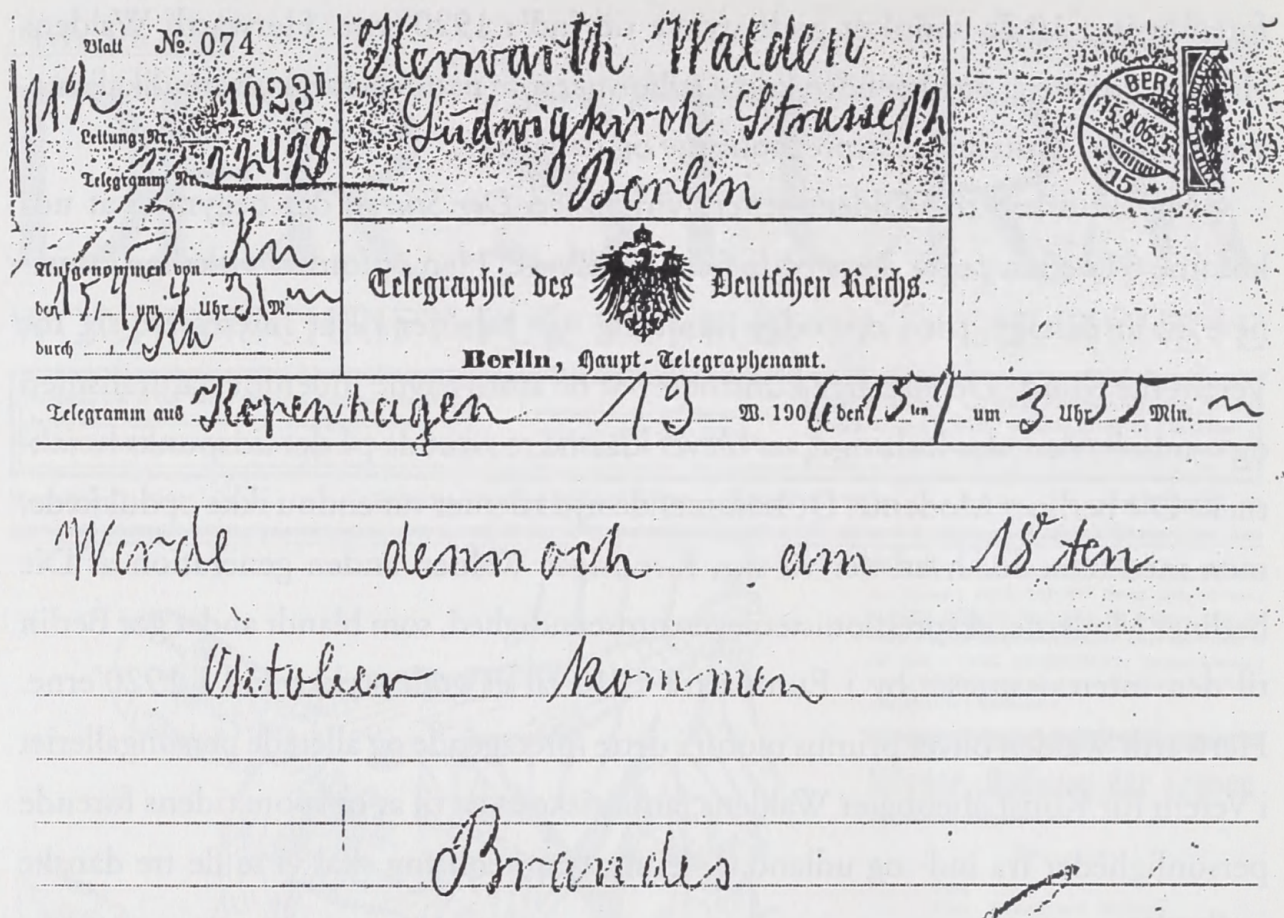 Blatt № 074
1023
Leitung Nr.
Telegramm Nr. 22428
Aufgenommen von
den 15/9 um 4 Uhr 31 M
durch
Herwarth Walden
Ludwigkirch Strasse 12
Berlin
Telegraphie des Deutschen Reichs.
Berlin, Haupt-Telegraphenamt.
BER
15
Telegramm aus Kopenhagen 13 W. 1906 den 15ten/9 um 3 Uhr 55 Min.
Werde dennoch am 18ten
Oktober kommen
Brandes